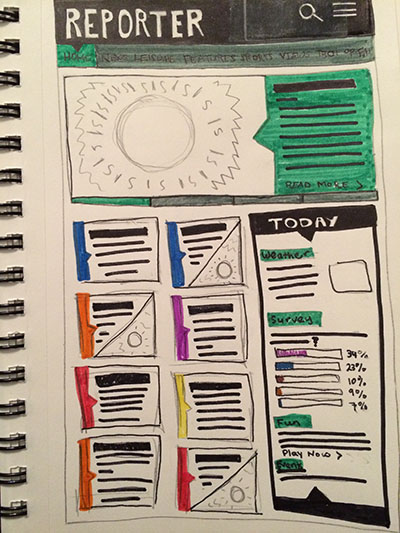 REPORTER
HOME NEWS LEISURE FEATURES SPORTS VIEWS
READ MORE >
TODAY
Weather
Survey
?
34%
23%
10%
9%
7%
Fun
Play Now >